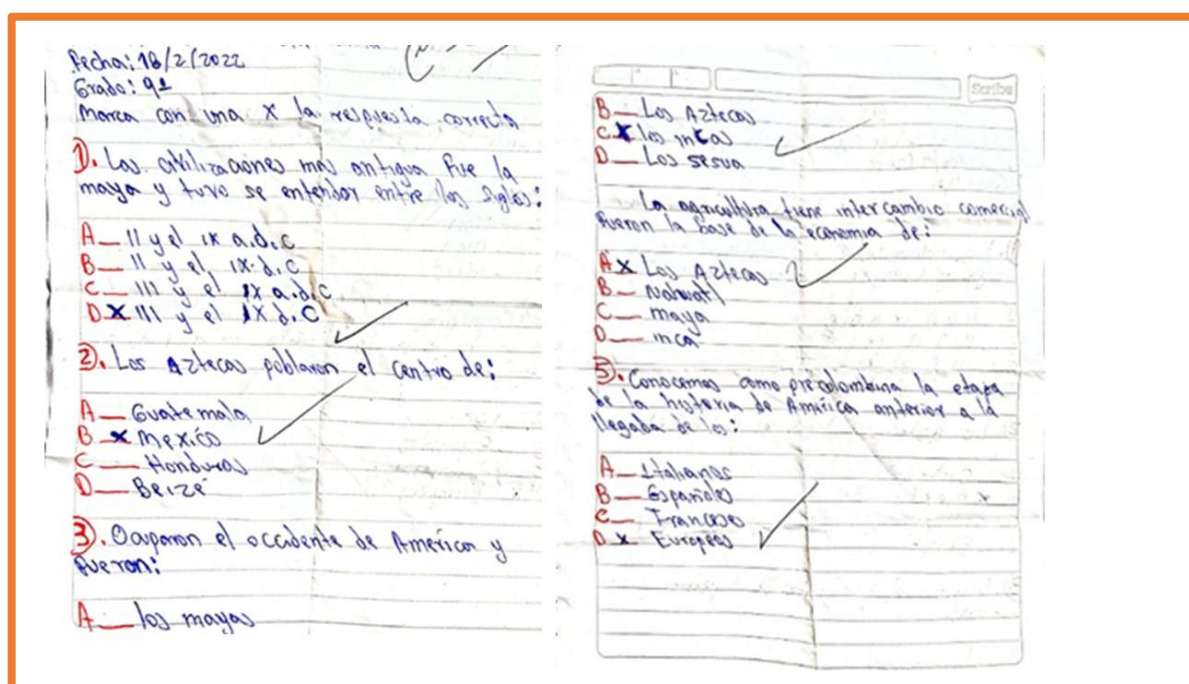 Fecha: 18/2/2022
Grado: 9º
Marca con una X la respuesta correcta
1). Las civilizaciones mas antigua fue la
maya y tuvo se entendor entre los siglos:
A__ II y el IX a.d.C
B__ II y el IX.d.C
C__ III y el IX a.d.C
D X III y el IX d.C
2). Los Aztecas poblaron el centro de:
A__ Guatemala
B X Mexíco
C__ Honduras
D__ Beizé
3). Ocuparon el occidente de América y
fueron:
A__ los mayas
Scribe
B__ Los Aztecas
C X los incas
D__ Los sesua
La agricultura tiene intercambio comercial
fueron la base de la economia de:
A X Los Aztecas
B__ Nahuatl
C__ maya
D__ inca
5). Conocemos como precolombina la etapa
de la historia de América anterior a la
llegada de los:
A__ Italianos
B__ Españoles
C__ Franceses
D X Europeos